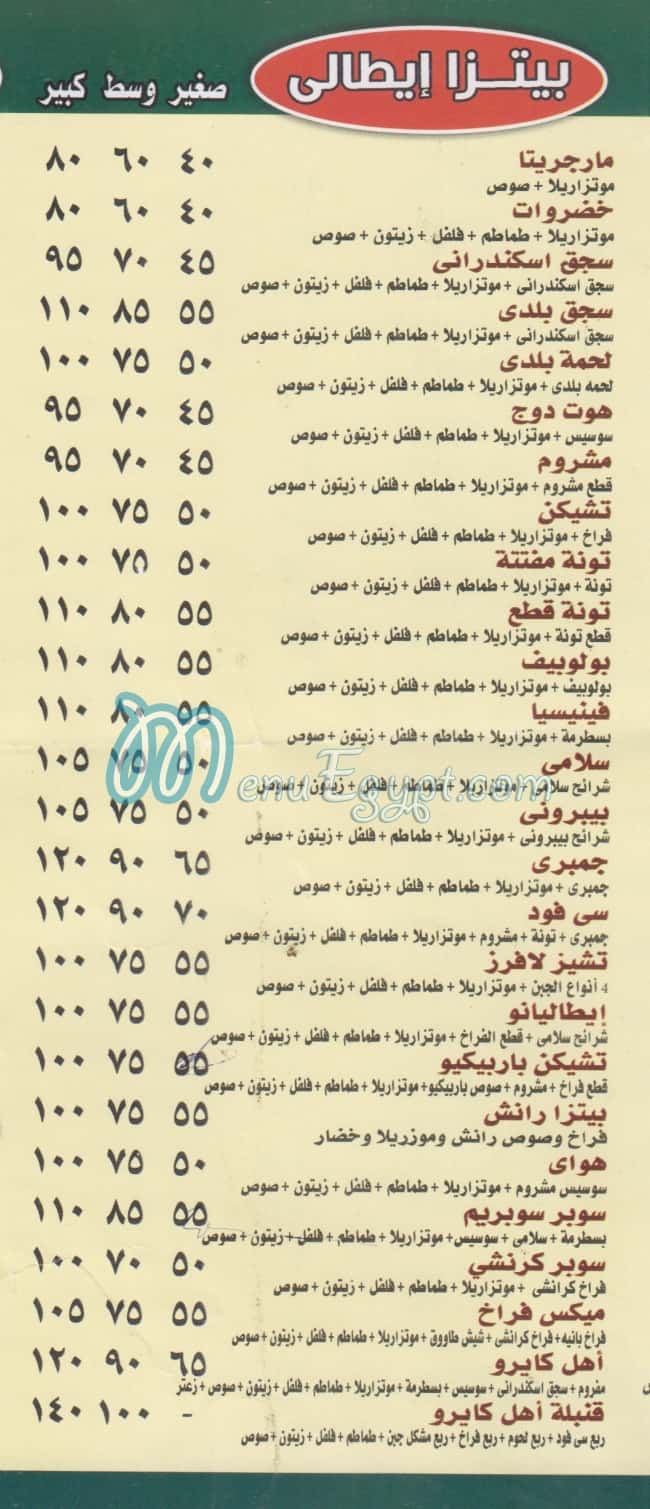 بيتزا إيطالى
صغير وسط كبير
مارجريتا ٤٠ ٦٠ ٨٠
موتزاريلا + صوص
خضروات ٤٠ ٦٠ ٨٠
موتزاريلا + طماطم + فلفل + زيتون + صوص
سجق اسكندرانى ٤٥ ٧٠ ٩٥
سجق اسكندرانى + موتزاريلا + طماطم + فلفل + زيتون + صوص
سجق بلدى ٥٥ ٨٥ ١١٠
سجق اسكندرانى + موتزاريلا + طماطم + فلفل + زيتون + صوص
لحمة بلدى ٥٠ ٧٥ ١٠٠
لحمه بلدى + موتزاريلا + طماطم + فلفل + زيتون + صوص
هوت دوج ٤٥ ٧٠ ٩٥
سوسيس + موتزاريلا + طماطم + فلفل + زيتون + صوص
مشروم ٤٥ ٧٠ ٩٥
قطع مشروم + موتزاريلا + طماطم + فلفل + زيتون + صوص
تشيكن ٥٠ ٧٥ ١٠٠
فراخ + موتزاريلا + طماطم + فلفل + زيتون + صوص
تونة مفتتة ٥٠ ٧٥ ١٠٠
تونة + موتزاريلا + طماطم + فلفل + زيتون + صوص
تونة قطع ٥٥ ٨٠ ١١٠
قطع تونة + موتزاريلا + طماطم + فلفل + زيتون + صوص
بولوبيف ٥٥ ٨٠ ١١٠
بولوبيف + موتزاريلا + طماطم + فلفل + زيتون + صوص
فينيسيا ٥٥ ٨٠ ١١٠
بسطرمة + موتزاريلا + طماطم + فلفل + زيتون + صوص
سلامى ٥٠ ٧٥ ١٠٥
شرائح سلامى + موتزاريلا + طماطم + فلفل + زيتون + صوص
MenuEgypt.com
بيبرونى ٥٠ ٧٥ ١٠٥
شرائح بيبرونى + موتزاريلا + طماطم + فلفل + زيتون + صوص
جمبرى ٦٥ ٩٠ ١٢٠
جمبرى + موتزاريلا + طماطم + فلفل + زيتون + صوص
سى فود ٧٠ ٩٠ ١٢٠
جمبرى + تونة + مشروم + موتزاريلا + طماطم + فلفل + زيتون + صوص
تشيز لافرز ٥٥ ٧٥ ١٠٠
4 أنواع الجبن + موتزاريلا + طماطم + فلفل + زيتون + صوص
إيطاليانو ٥٥ ٧٥ ١٠٠
شرائح سلامى + قطع الفراخ + موتزاريلا + طماطم + فلفل + زيتون + صوص
تشيكن باربيكيو ٥٥ ٧٥ ١٠٠
قطع فراخ + مشروم + صوص باربيكيو+ موتزاريلا + طماطم + فلفل + زيتون + صوص
بيتزا رانش ٥٥ ٧٥ ١٠٠
فراخ وصوص رانش وموزريلا وخضار
هواى ٥٠ ٧٥ ١٠٠
سوسيس مشروم + موتزاريلا + طماطم + فلفل + زيتون + صوص
سوبر سوبريم ٥٥ ٨٥ ١١٠
بسطرمة + سلامى + سوسيس+ موتزاريلا + طماطم + فلفل + زيتون + صوص
سوبر كرنشي ٥٠ ٧٠ ١٠٠
فراخ كرانشى + موتزاريلا + طماطم + فلفل + زيتون + صوص
ميكس فراخ ٥٥ ٧٥ ١٠٥
فراخ بانيه+ فراخ كرانشى + شيش طاووق + موتزاريلا + طماطم + فلفل + زيتون + صوص
أهل كايرو ٦٥ ٩٠ ١٢٠
مفروم + سجق اسكندرانى + سوسيس + بسطرمة + موتزاريلا + طماطم + فلفل + زيتون + صوص + زعتر
قنبلة أهل كايرو - ١٠٠ ١٤٠
ربع سى فود + ربع لحوم + ربع فراخ + ربع مشكل جبن + طماطم + فلفل + زيتون + صوص